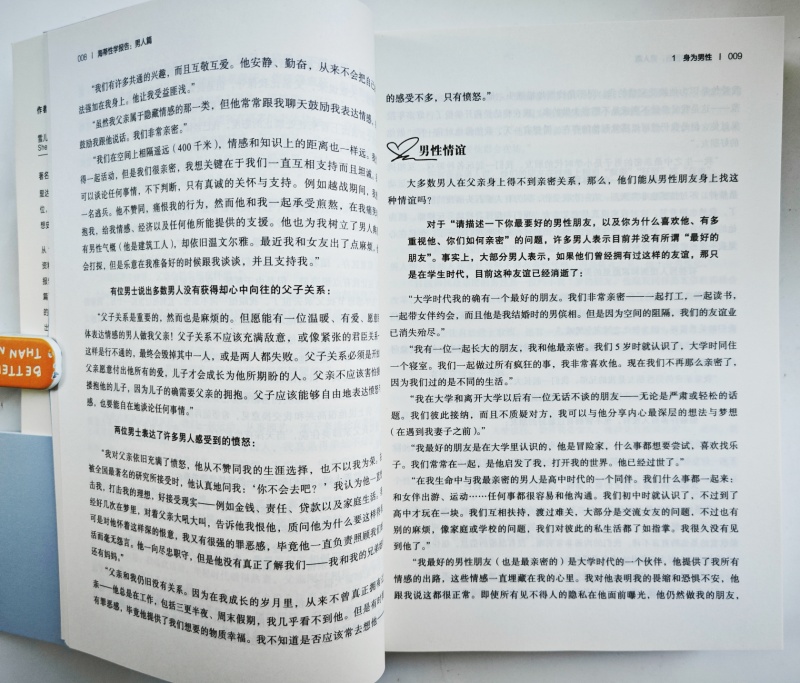 008 | 海蒂性学报告：男人篇
“我们有许多共通的兴趣，而且互敬互爱。他安静、勤奋，从来不会把自己
法强加在我身上。他让我受益匪浅。”
“虽然我父亲属于隐藏情感的那一类，但他常常跟我聊天鼓励我表达情感，
鼓励我跟他说话。我们非常亲密。”
“我们在空间上相隔遥远（400 千米），情感和知识上的距离也一样远。我
得一起活动，但是我们很亲密，我想关键在于我们一直互相支持而且坦诚，
可以谈论任何事情，不下判断，只有真诚的关怀与支持。例如越战期间，我
一名逃兵。他不赞同，痛恨我的行为，然而他和我一起承受煎熬，在我痛
抱我，给我情感、经济以及任何他所能提供的支援。他也为我树立了男人
有男性气概（他是建筑工人），却依旧温文尔雅。最近我和女友出了点麻烦，
会打探，但是乐意在我准备好的时候跟我谈谈，并且支持我。”
有位男士说出多数男人没有获得却心中向往的父子关系：
“父子关系是重要的，然而也是麻烦的。但愿能有一位温暖、有爱、愿意
体表达情感的男人做我父亲！父子关系不应该充满敌意，或像紧张的君臣关
这样是行不通的，最终会毁掉其中一人，或是两人都失败。父子关系必须是
父亲愿意付出他所有的爱，儿子才会成长为他所期盼的人。父亲不应该害怕
搂抱他的儿子，因为儿子的确需要父亲的拥抱。父子应该能够自由地表达愤怒
感，也要能自在地谈论任何事情。”
两位男士表达了许多男人感受到的愤怒：
“我对父亲依旧充满了愤怒，他从不赞同我的生涯选择，也不以我为荣。
被全国最著名的研究所接受时，他认真地问我：‘你不会去吧？’我认为他一直
击我，打击我的理想。好接受现实——例如金钱、责任、贷款以及家庭生活。
经好几次在梦里，对着父亲大吼大叫，告诉他我恨他，质问他为什么要这样
可是对他怀着这样深的恨意，我又有很强的罪恶感，毕竟他一直负责照顾我们
活而毫无怨言，他一向尽忠职守，但是他没有真正了解我们——我和我的兄弟
还有妈妈。”
“父亲和我仍旧没有关系。因为在我成长的岁月里，从来不曾真正拥有
亲——他总是在工作，包括三更半夜、周末假期，我几乎看不到他。但是有时
有罪恶感，毕竟他提供了我们想要的物质幸福。我不知道是否应该常去想他
作者
雪儿
She
著名
BETTER
THAN
1 身为男性 | 009
的感受不多，只有愤怒。”
男性情谊
大多数男人在父亲身上得不到亲密关系，那么，他们能从男性朋友身上找这
种情谊吗？
对于“请描述一下你最要好的男性朋友，以及你为什么喜欢他、有多
重视他、你们如何亲密”的问题，许多男人表示目前并没有所谓“最好的
朋友”。事实上，大部分男人表示，如果他们曾经拥有过这样的友谊，那只
是在学生时代，目前这种友谊已经消逝了：
“大学时代我的确有一个最好的朋友。我们非常亲密——一起打工，一起读书，
一起带女伴约会，而且他是我结婚时的男傧相。但是因为空间的阻隔，我们的友谊业
已消失殆尽。”
“我有一位一起长大的朋友，我和他最亲密。我们 5 岁时就认识了，大学时同住
一个寝室。我们一起做过所有疯狂的事，我非常喜欢他。现在我们不再那么亲密了，
因为我们过的是不同的生活。”
“我在大学和离开大学以后有一位无话不谈的朋友——无论是严肃或轻松的话
题。我们彼此接纳，而且不质疑对方，我可以与他分享内心最深层的想法与梦想
（在遇到我妻子之前）。”
“我最好的朋友是在大学里认识的，他是冒险家，什么事都想要尝试，喜欢找乐
子。我们常常在一起，是他启发了我，打开我的世界。他已经过世了。”
“在我生命中与我最亲密的男人是高中时代的一个同伴。我们什么事都一起来：
和女伴出游、运动……任何事都很容易和他沟通。我们初中时就认识了，不过到了
高中才玩在一块。我们互相扶持，渡过难关，大部分是交流女友的问题，不过也有
别的麻烦，像家庭或学校的问题，我们对彼此的私生活都了如指掌。我很久没有见
到他了。”
“我最好的男性朋友（也是最亲密的）是大学时代的一个伙伴，他提供了我所有
情感的出路，这些情感一直埋藏在我的心里。我对他表明我的畏缩和恐惧不安，他
跟我说这都很正常。即使所有见不得人的隐私在他面前曝光，他仍然做我的朋友，